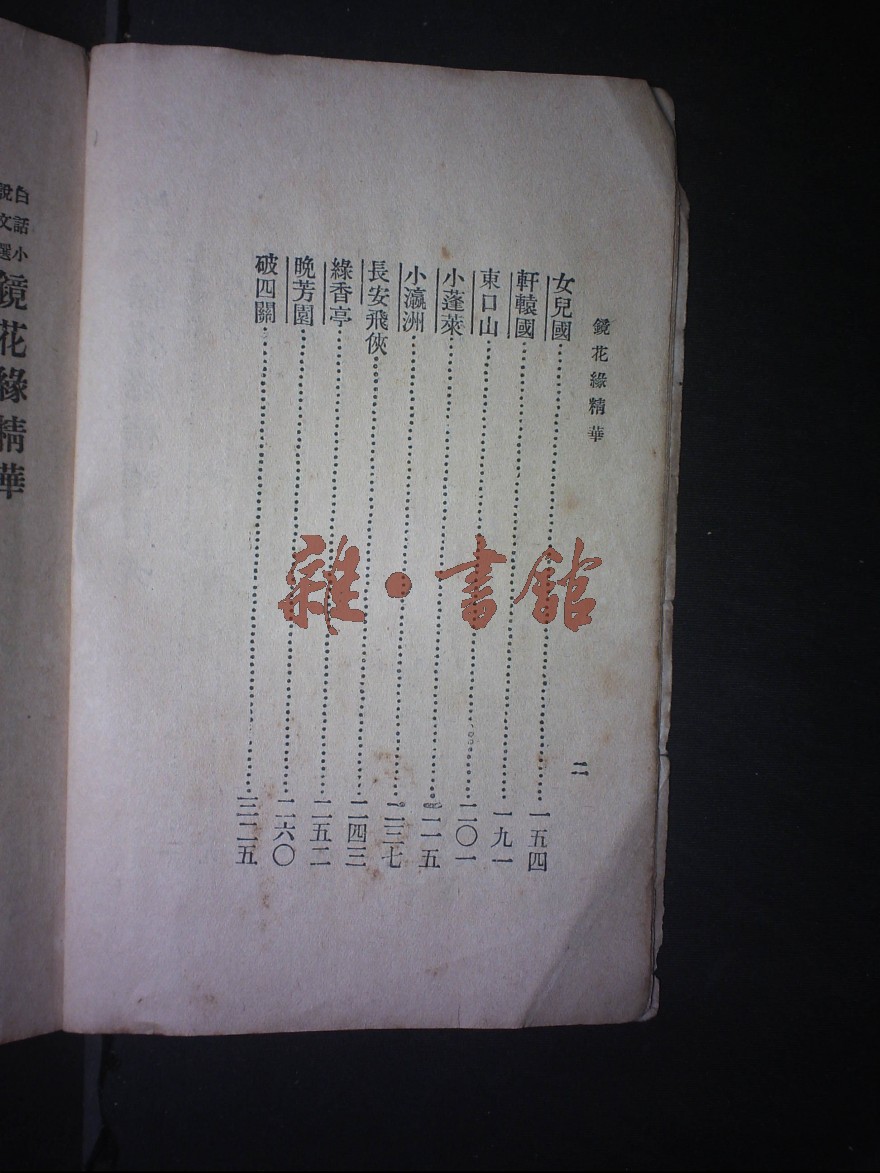 鏡花緣精華
二
女兒國……一五四
軒轅國……一九一
東口山……二〇一
小蓬萊……二一五
小瀛洲……二三七
長安飛俠……二四三
綠香亭……二五二
晚芳園……二六〇
破四關……三二五
白話小
說文選
鏡花緣精華
雜·書館